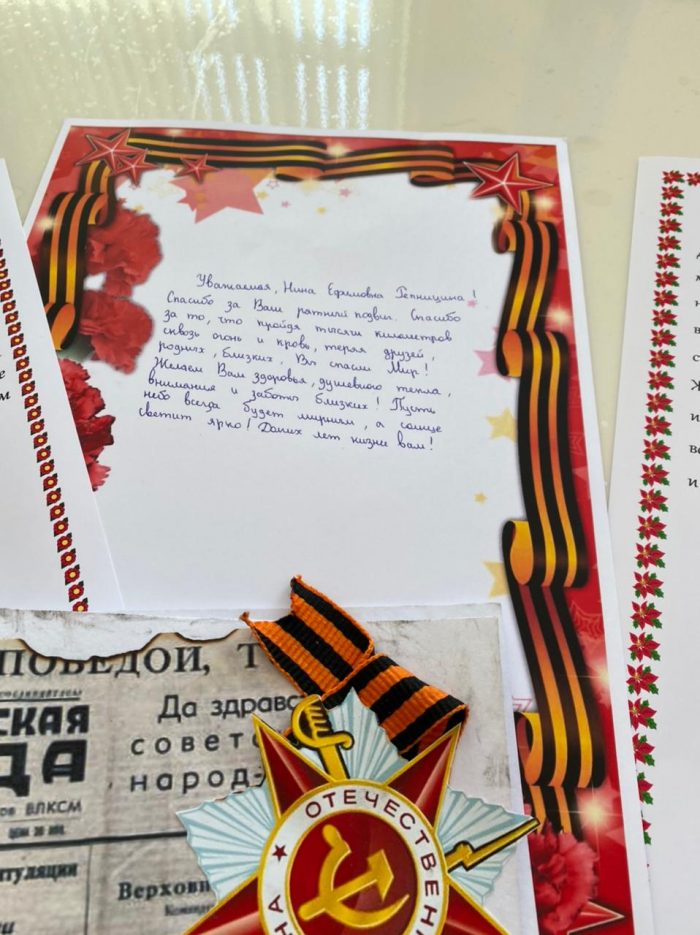 Уважаемая, Нина Ефимовна Тепницина!
Спасибо за Ваш ратный подвиг. Спасибо
за то, что пройдя тысячи километров
сквозь огонь и кровь, теряя друзей,
родных, близких, Вы спасли Мир!
Желаем Вам здоровья, душевного тепла,
внимания и заботы близких! Пусть
небо всегда будет мирным, а солнце
светит ярко! Долгих лет жизни вам!
м
ПОБЕДОЙ, Т
СКАЯ
ДА
ов ВЛКСМ
Да здравс
совет
народ-
туляции
Верховн
ОТЕЧЕСТВЕНН
НА
с
Ж
и
во
и